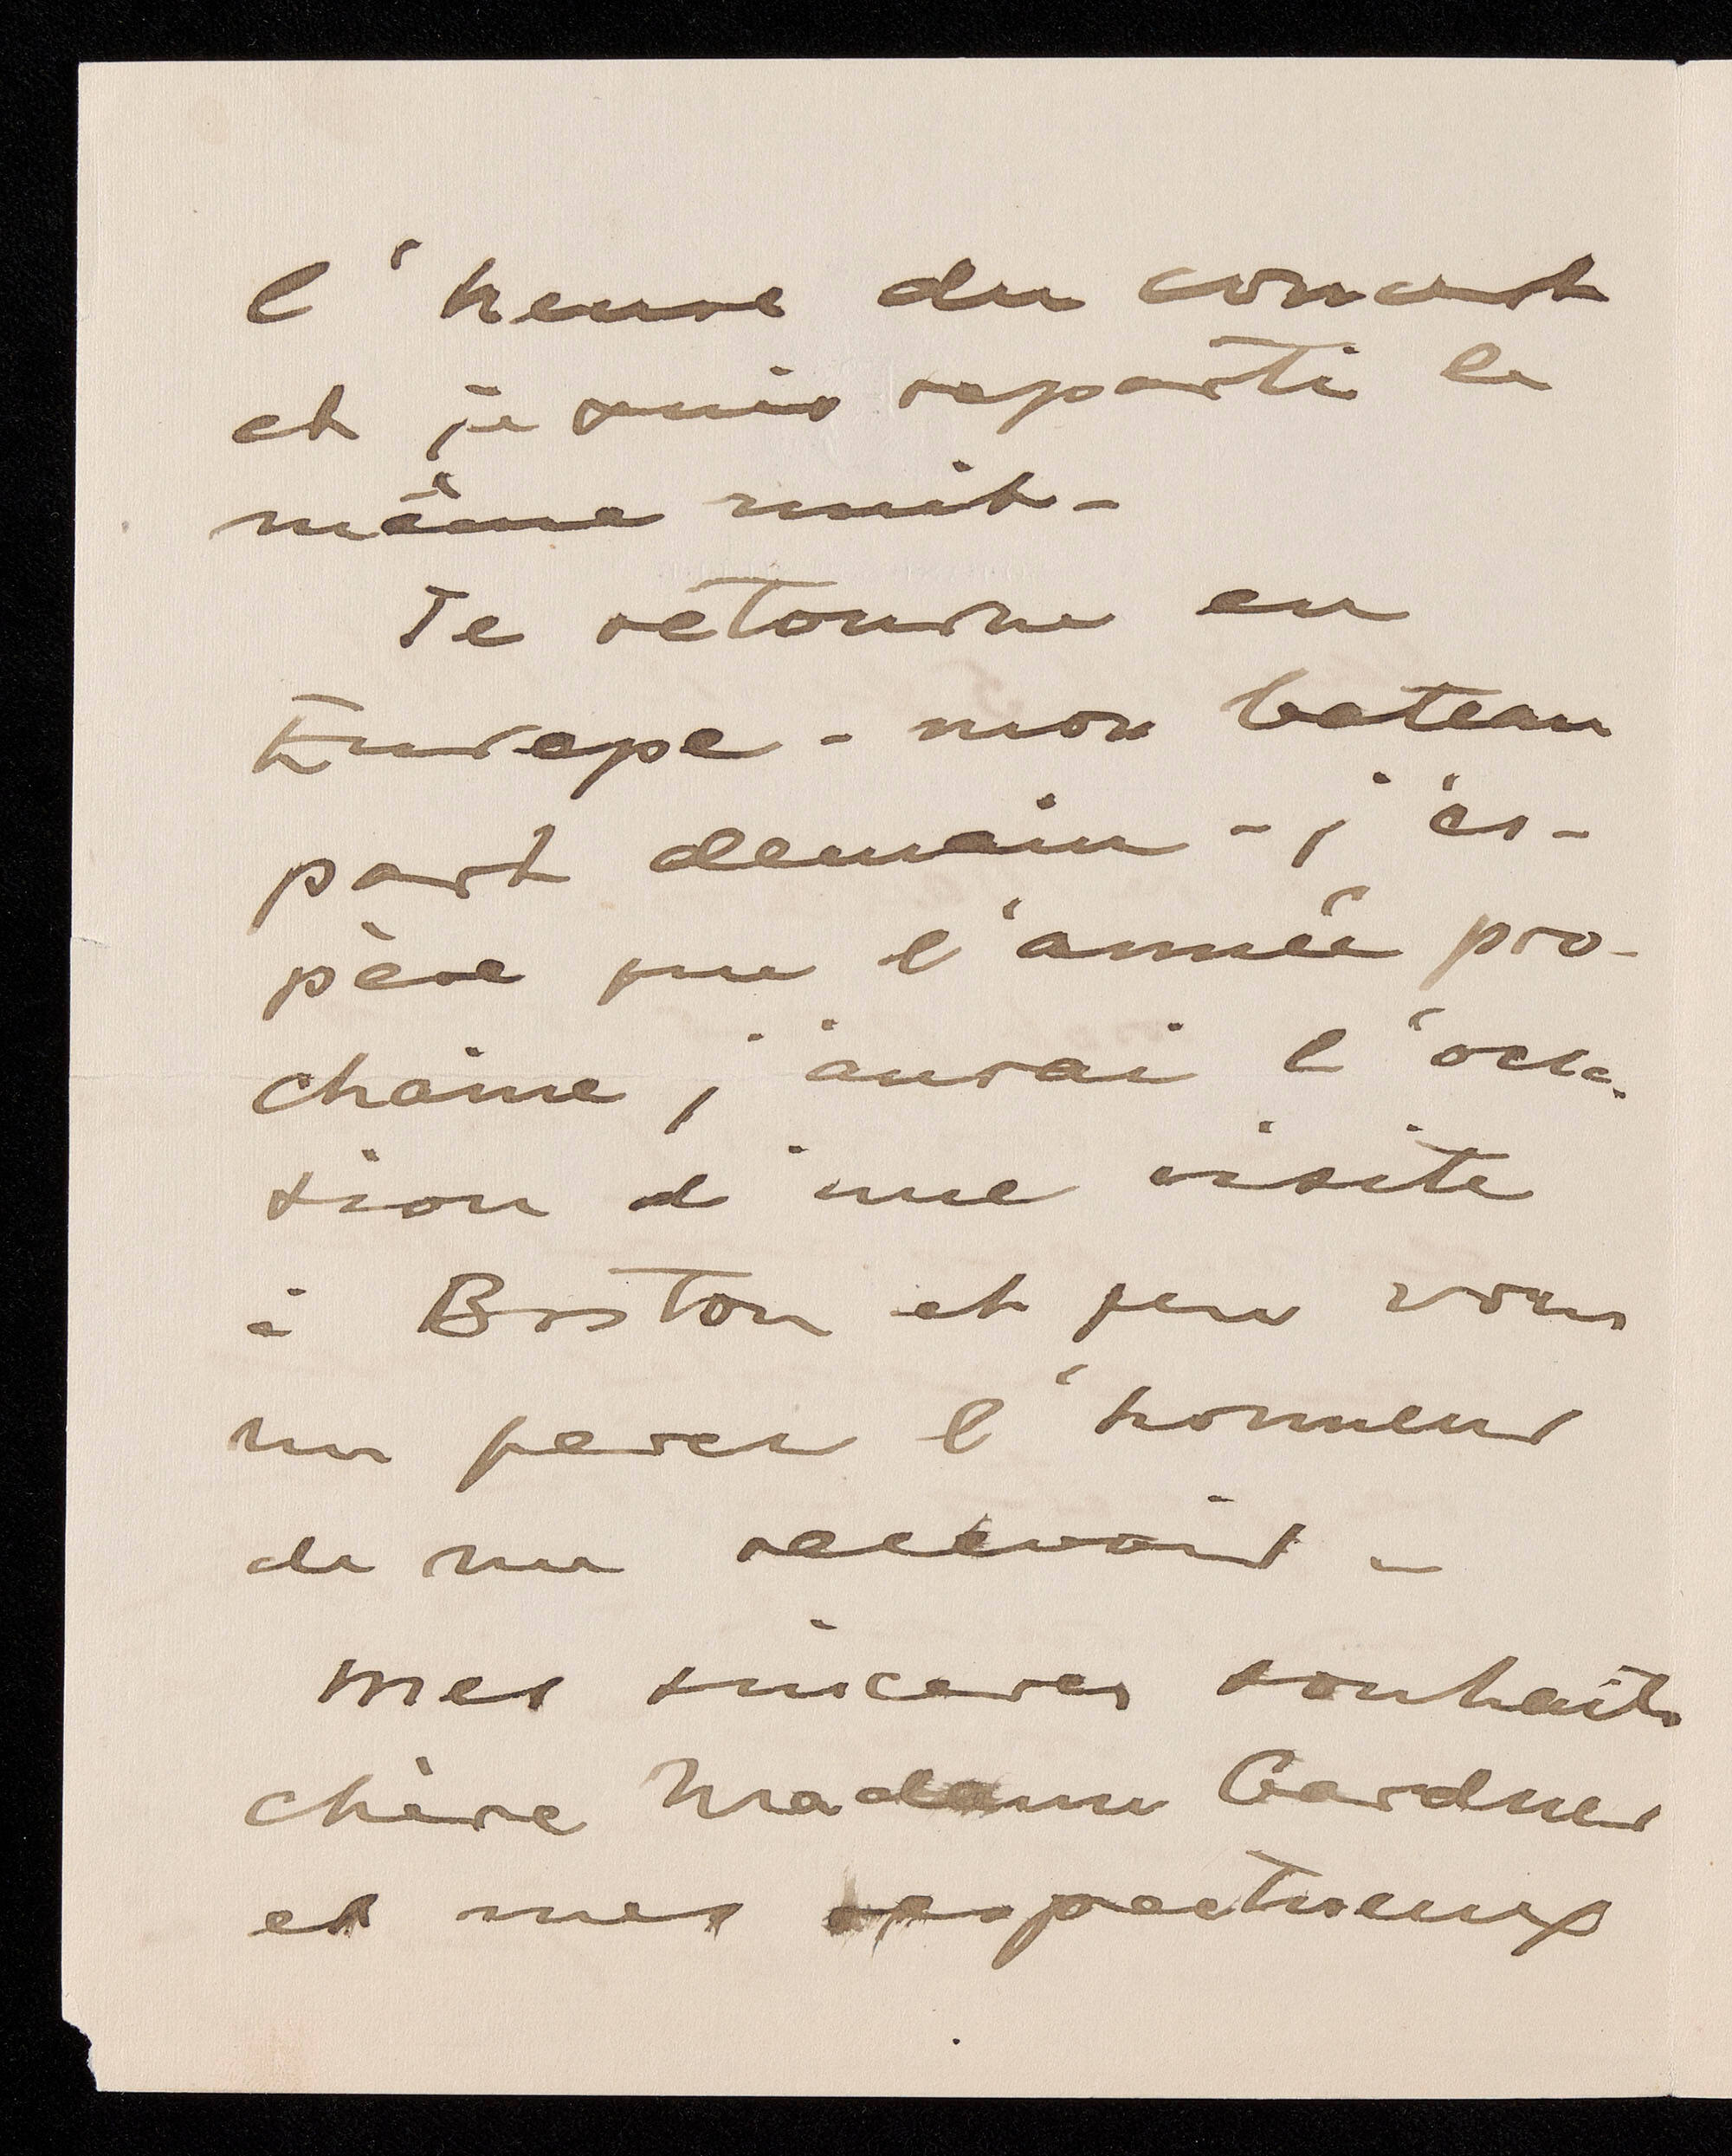 l'heure du concert
et je suis reparti la
même nuit -
Je retourne en
Europe - mon bateau
part demain - j'es-
père que l'année pro-
chaine j'aurai l'occa-
sion d'une visite
à Boston et que vous
me ferez l'honneur
de me recevoir -
Mes sinceres souhaits
chère Madame Gardner
et mes respectueux